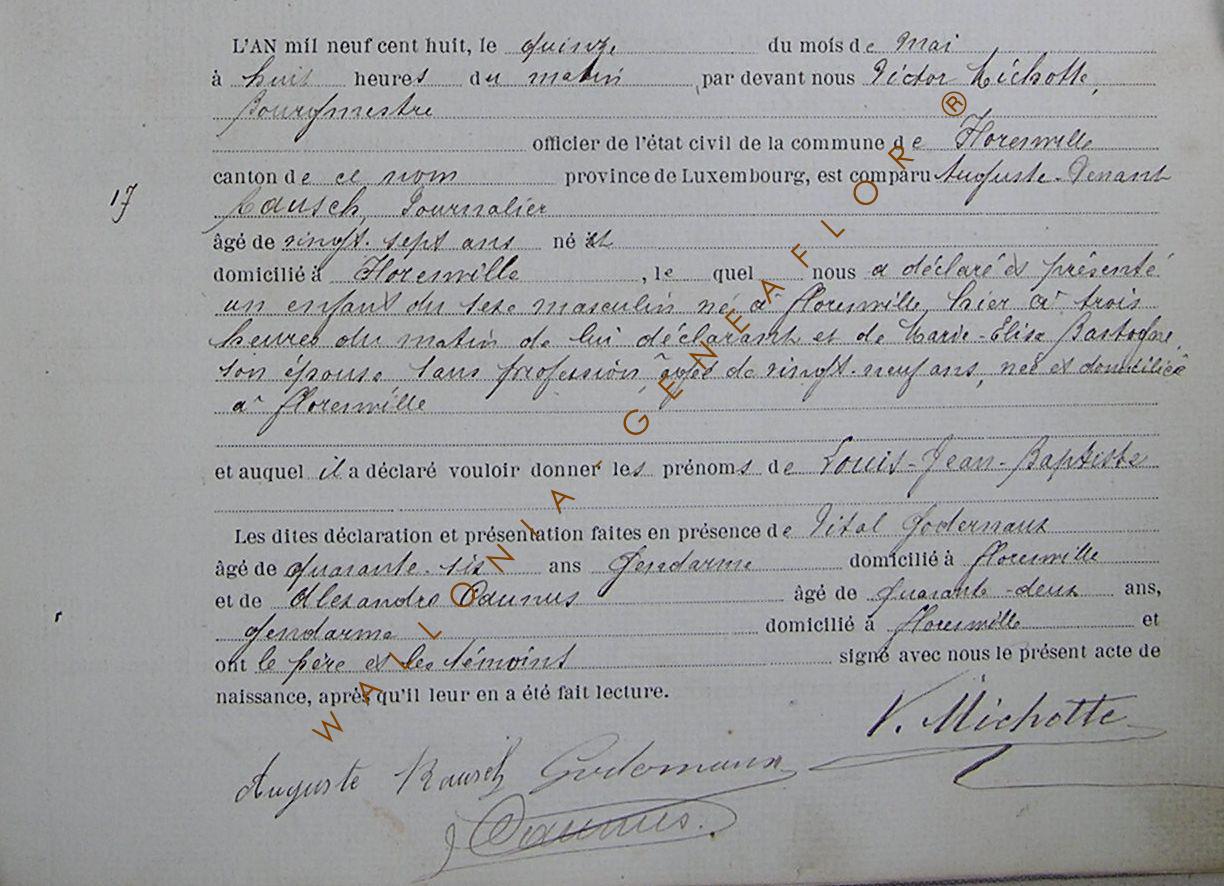 L'AN mil neuf cent huit, le quinze du mois de Mai
à huit heures du matin par devant nous Victor Michotte,
Bourgmestre
officier de l'état civil de la commune de Florenville
canton de ce nom province de Luxembourg, est comparu Auguste-Venant
17
Rausch, Journalier
âgé de vingt-sept ans né et
domicilié à Florenville, le quel nous a déclaré et présenté
un enfant du sexe masculin né à Florenville, hier à trois
heures du matin de lui déclarant et de Marie-Elise Bastogne,
son épouse sans profession, âgée de vingt-neuf ans, née et domiciliée
à Florenville
et auquel il a déclaré vouloir donner les prénoms de Louis-Jean-Baptiste
Les dites déclaration et présentation faites en présence de Vital
âgé de quarante-six ans Gendarme domicilié à Florenville
et de Alexandre Daunus âgé de quarante-deux ans,
gendarme domicilié à Florenville et
ont le père et les témoins signé avec nous le présent acte de
naissance, après qu'il leur en a été fait lecture.
V. Michotte
Auguste Rausch
Daunus.
WALLONIA - GENEAFLOR ®